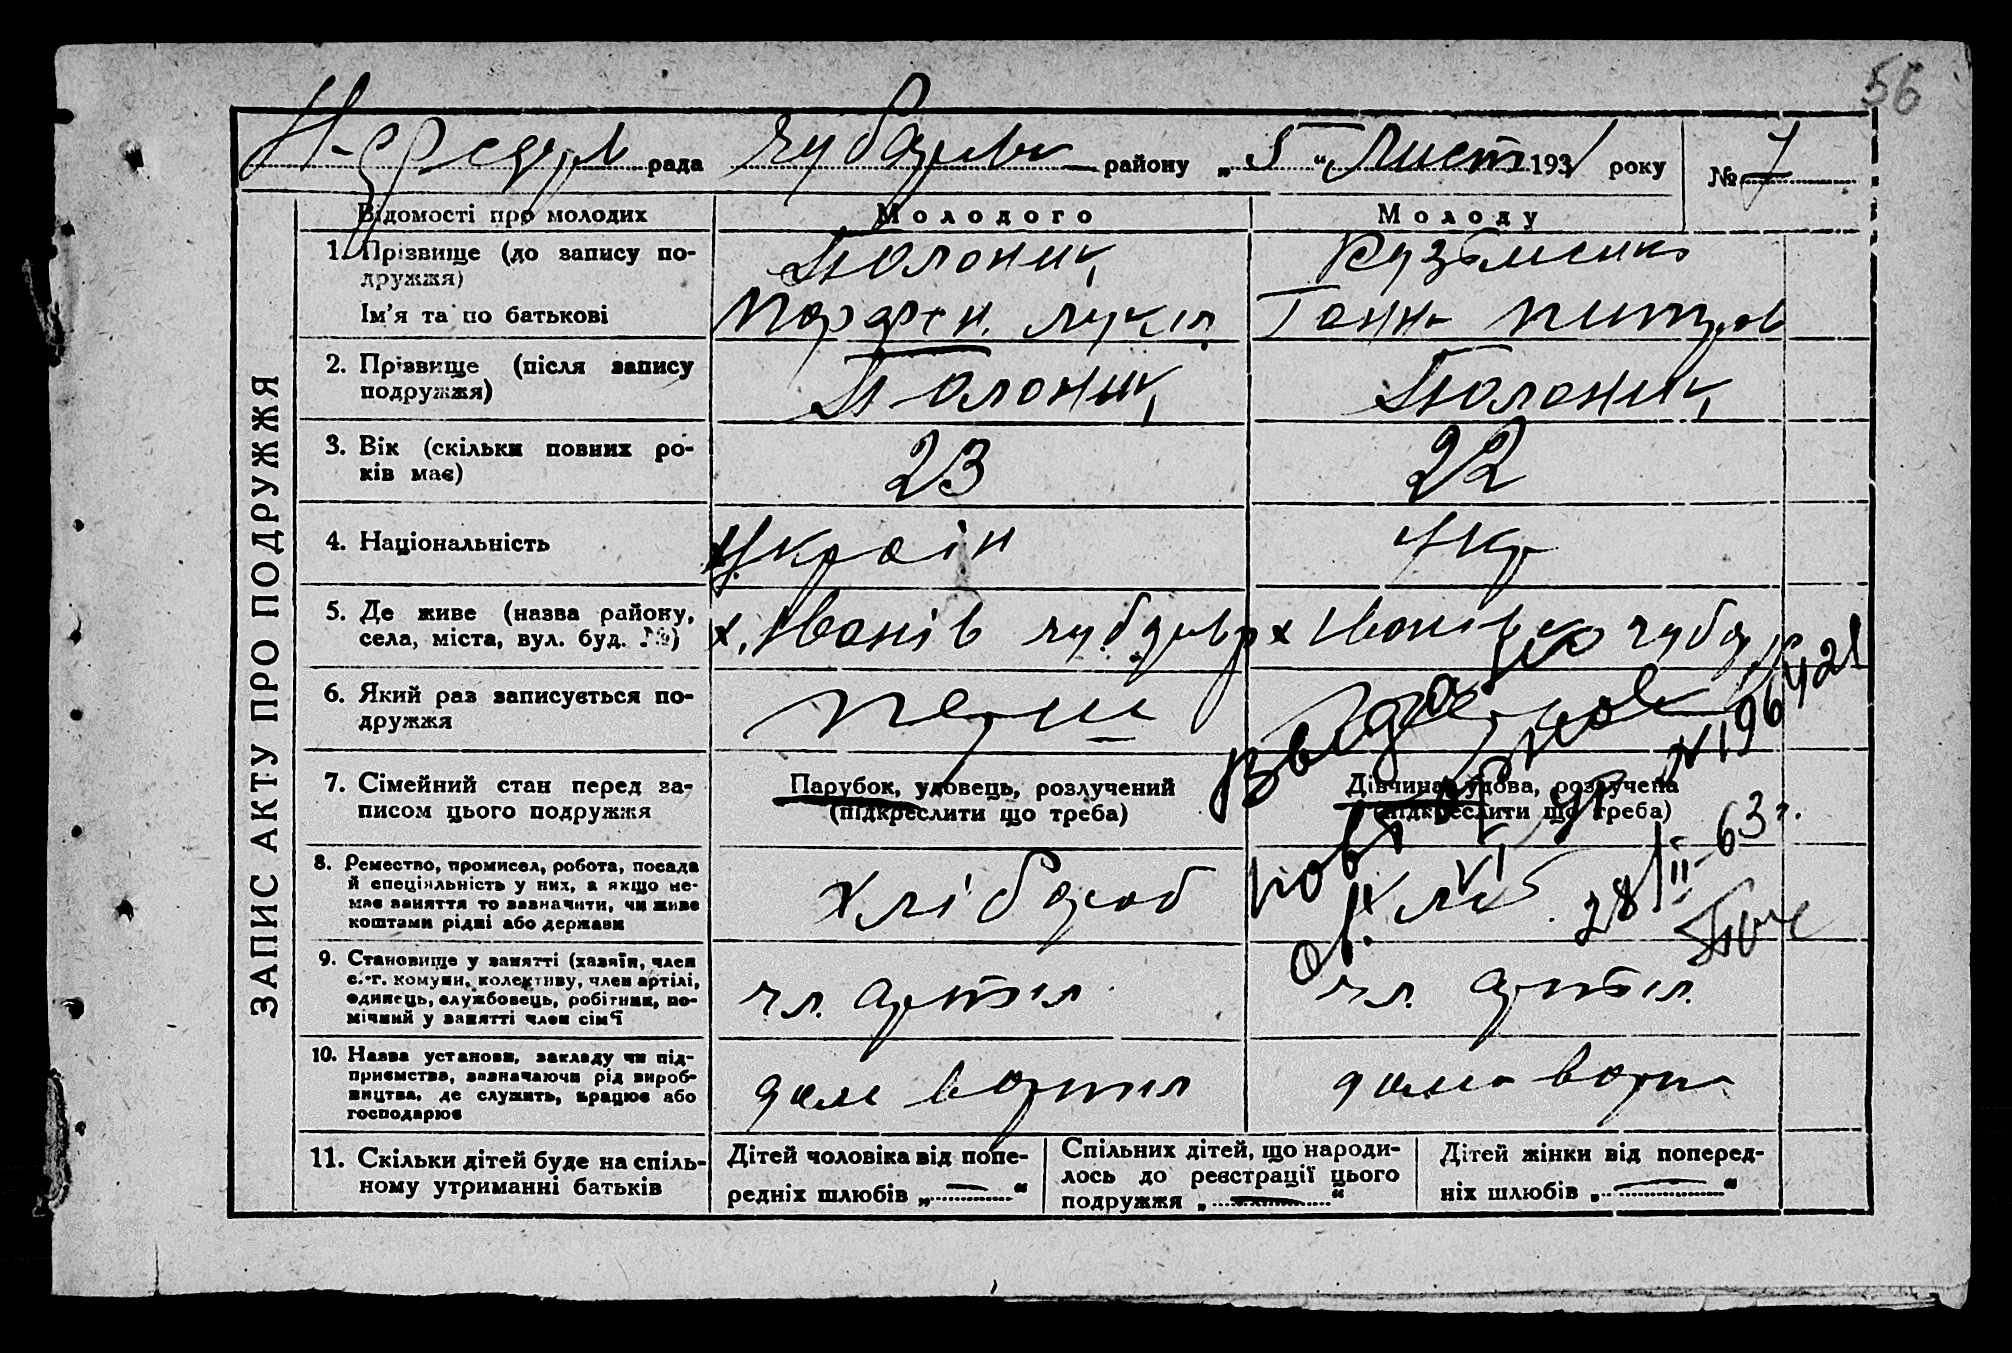 56
рада Чубарівськ району „5“ Лист 1931 року № 7
ЗАПИС АКТУ ПРО ПОДРУЖЖЯ
Відомості про молодих Молодого Молоду
1. Прізвище (до запису по-
дружжя) Полониц Кузьменко
Ім'я та по батькові Парфен. Лукія Ганна
2. Прізвище (після запису
подружжя) Полониц Полониц
3. Вік (скільки повних ро-
ків має) 23 22
4. Національність Україн Укр
5. Де живе (назва району,
села, міста, вул. буд. №) х. Іванів х Іванівка
6. Який раз записується по-
дружжя перш
7. Сімейний стан перед за-
писом цього подружжя
Парубок, удовець, розлучений
(підкреслити що треба)
Дівчина, удова, розлучена
(підкреслити що треба)
8. Ремество, промисел, робота, посада
й спеціяльність у них, а якщо не-
має заняття то зазначити, чи живе
коштами рідні або держави
Хлібороб Хліб
9. Становище у занятті (хазяїн, член
с.-г. комуни, колективу, член артілі,
одинець, службовець, робітник, по-
мічний у занятті член сім'ї
чл. артіл чл. артіл.
10. Назва установи, закладу чи під-
приємства, зазначаючи рід вироб-
ництва, де служить, працює або
господарює
11. Скільки дітей буде на спіль-
ному утриманні батьків
Дітей чоловіка від попе-
редніх шлюбів „—“
Спільних дітей, що народи-
лось до реєстрації цього
подружжя „—“
Дітей жінки від поперед-
ніх шлюбів „—“
28/II-63 г.